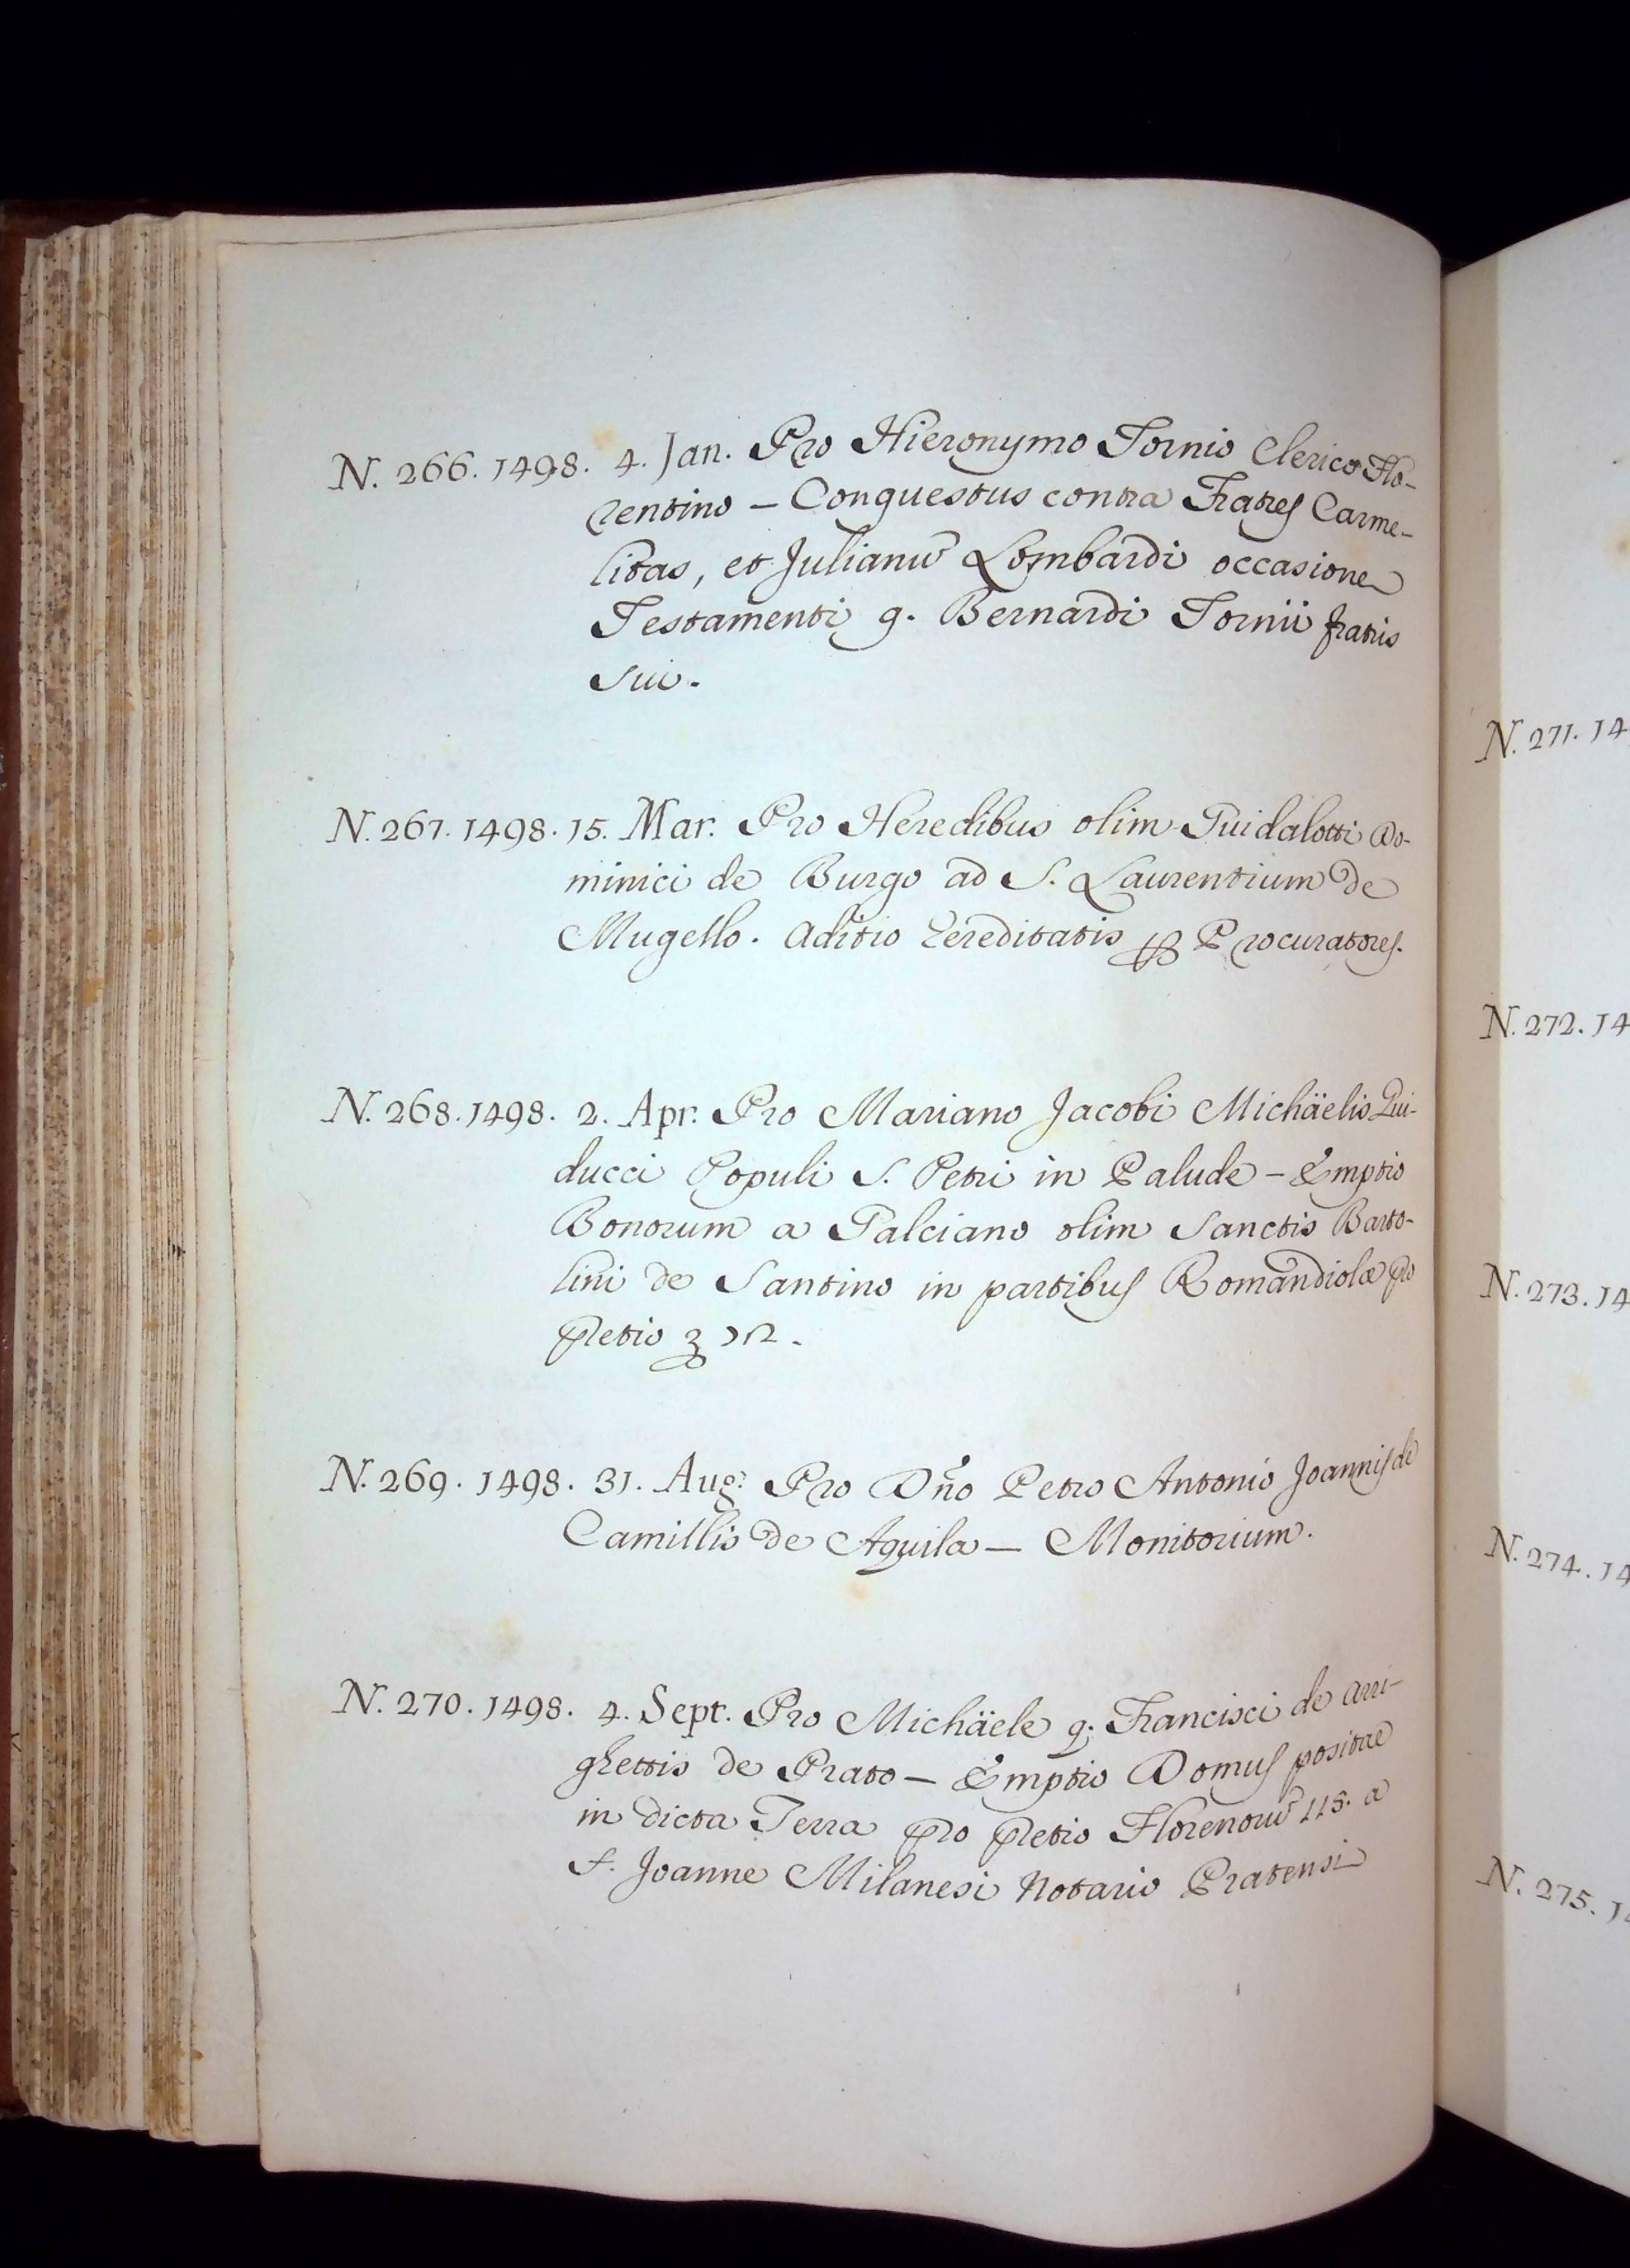 N. 266. 1498. 4. Jan. Pro Hieronymo Tornio Clerico Flo-
rentino – Conquestus contra Fratres Carme-
litas, et Julianũ Lombardi occasione
Testamenti q. Bernardi Tornii fratris
sui.
N. 267. 1498. 15. Mar. Pro Heredibus olim Guidalotti Do-
minici de Burgo ad S. Laurentium de
Mugello. Aditio Hereditatis Procuratores.
N. 268. 1498. 2. Apr. Pro Mariano Jacobi Michäelis Gui-
ducci Populi S. Petri in Palude – Emptio
Bonorum a Galciano olim Sanctis Barto-
lini de Santino in partibus Romandiolæ pro
pretio
N. 269. 1498. 31. Aug: Pro Dño Petro Antonio Joannis de
Camillis de Aquila – Monitorium.
N. 270. 1498. 4. Sept. Pro Michäele q. Francisci de Arri-
ghettis de Prato – Emptio Domus positae
in dicta Terra pro pretio Florenorũ 115. a
S. Joanne Milanesi Notario Pratensi
N. 271. 14
N. 272. 14
N. 273. 14
N. 274. 14
N. 275. 14